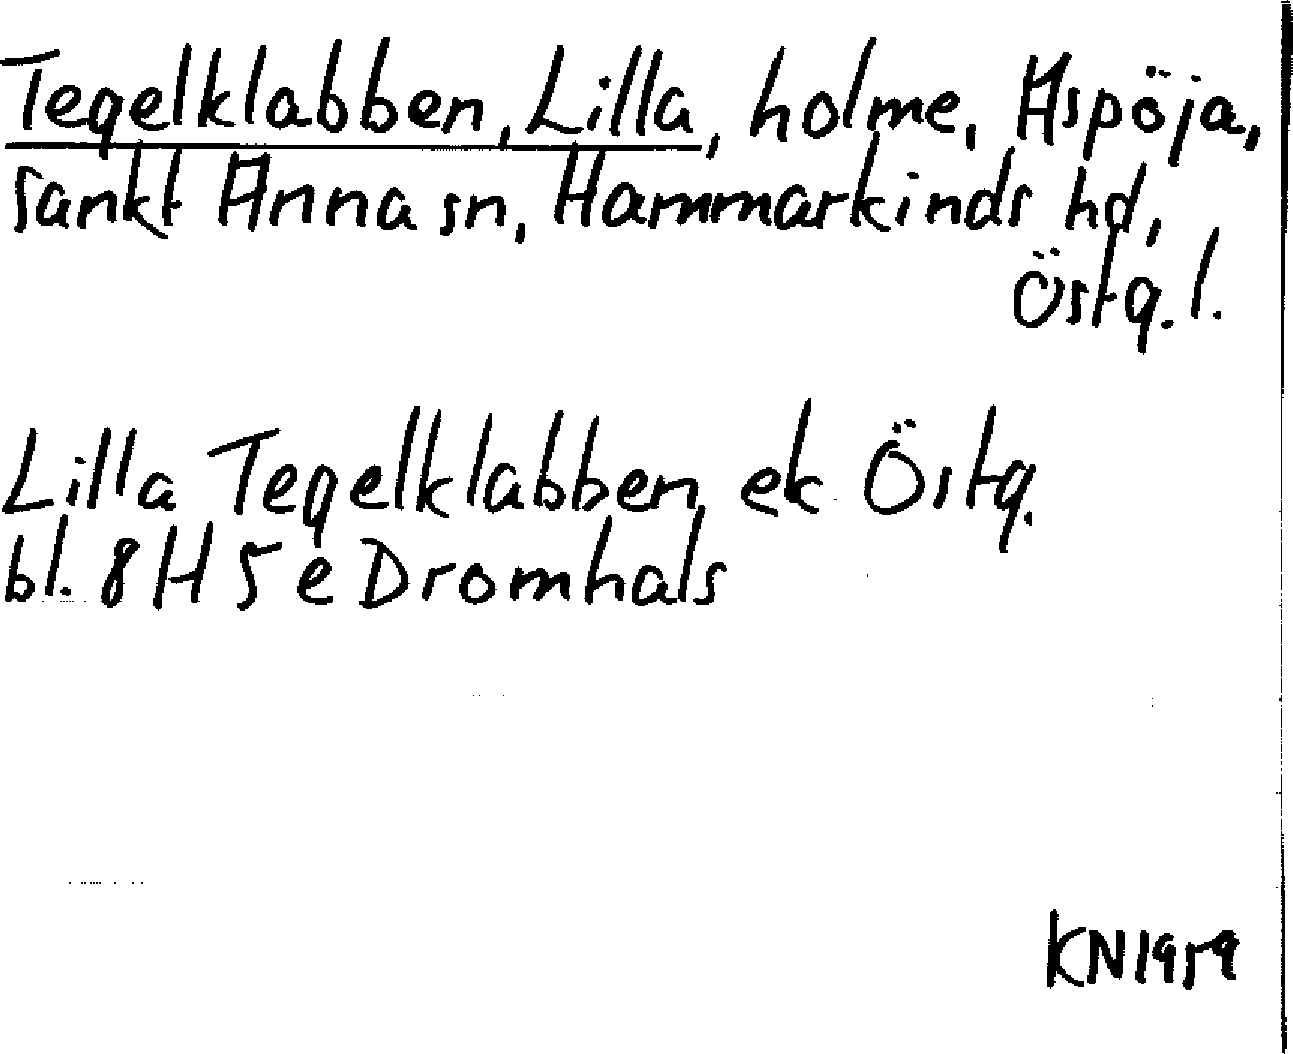 Tegelklabben, Lilla, holme, Aspöja,
Sankt Anna sn, Hammarkinds hd,
Östg. l.
Lilla Tegelklabben ek Östg.
bl. 8H5e Dromhals
KN1959